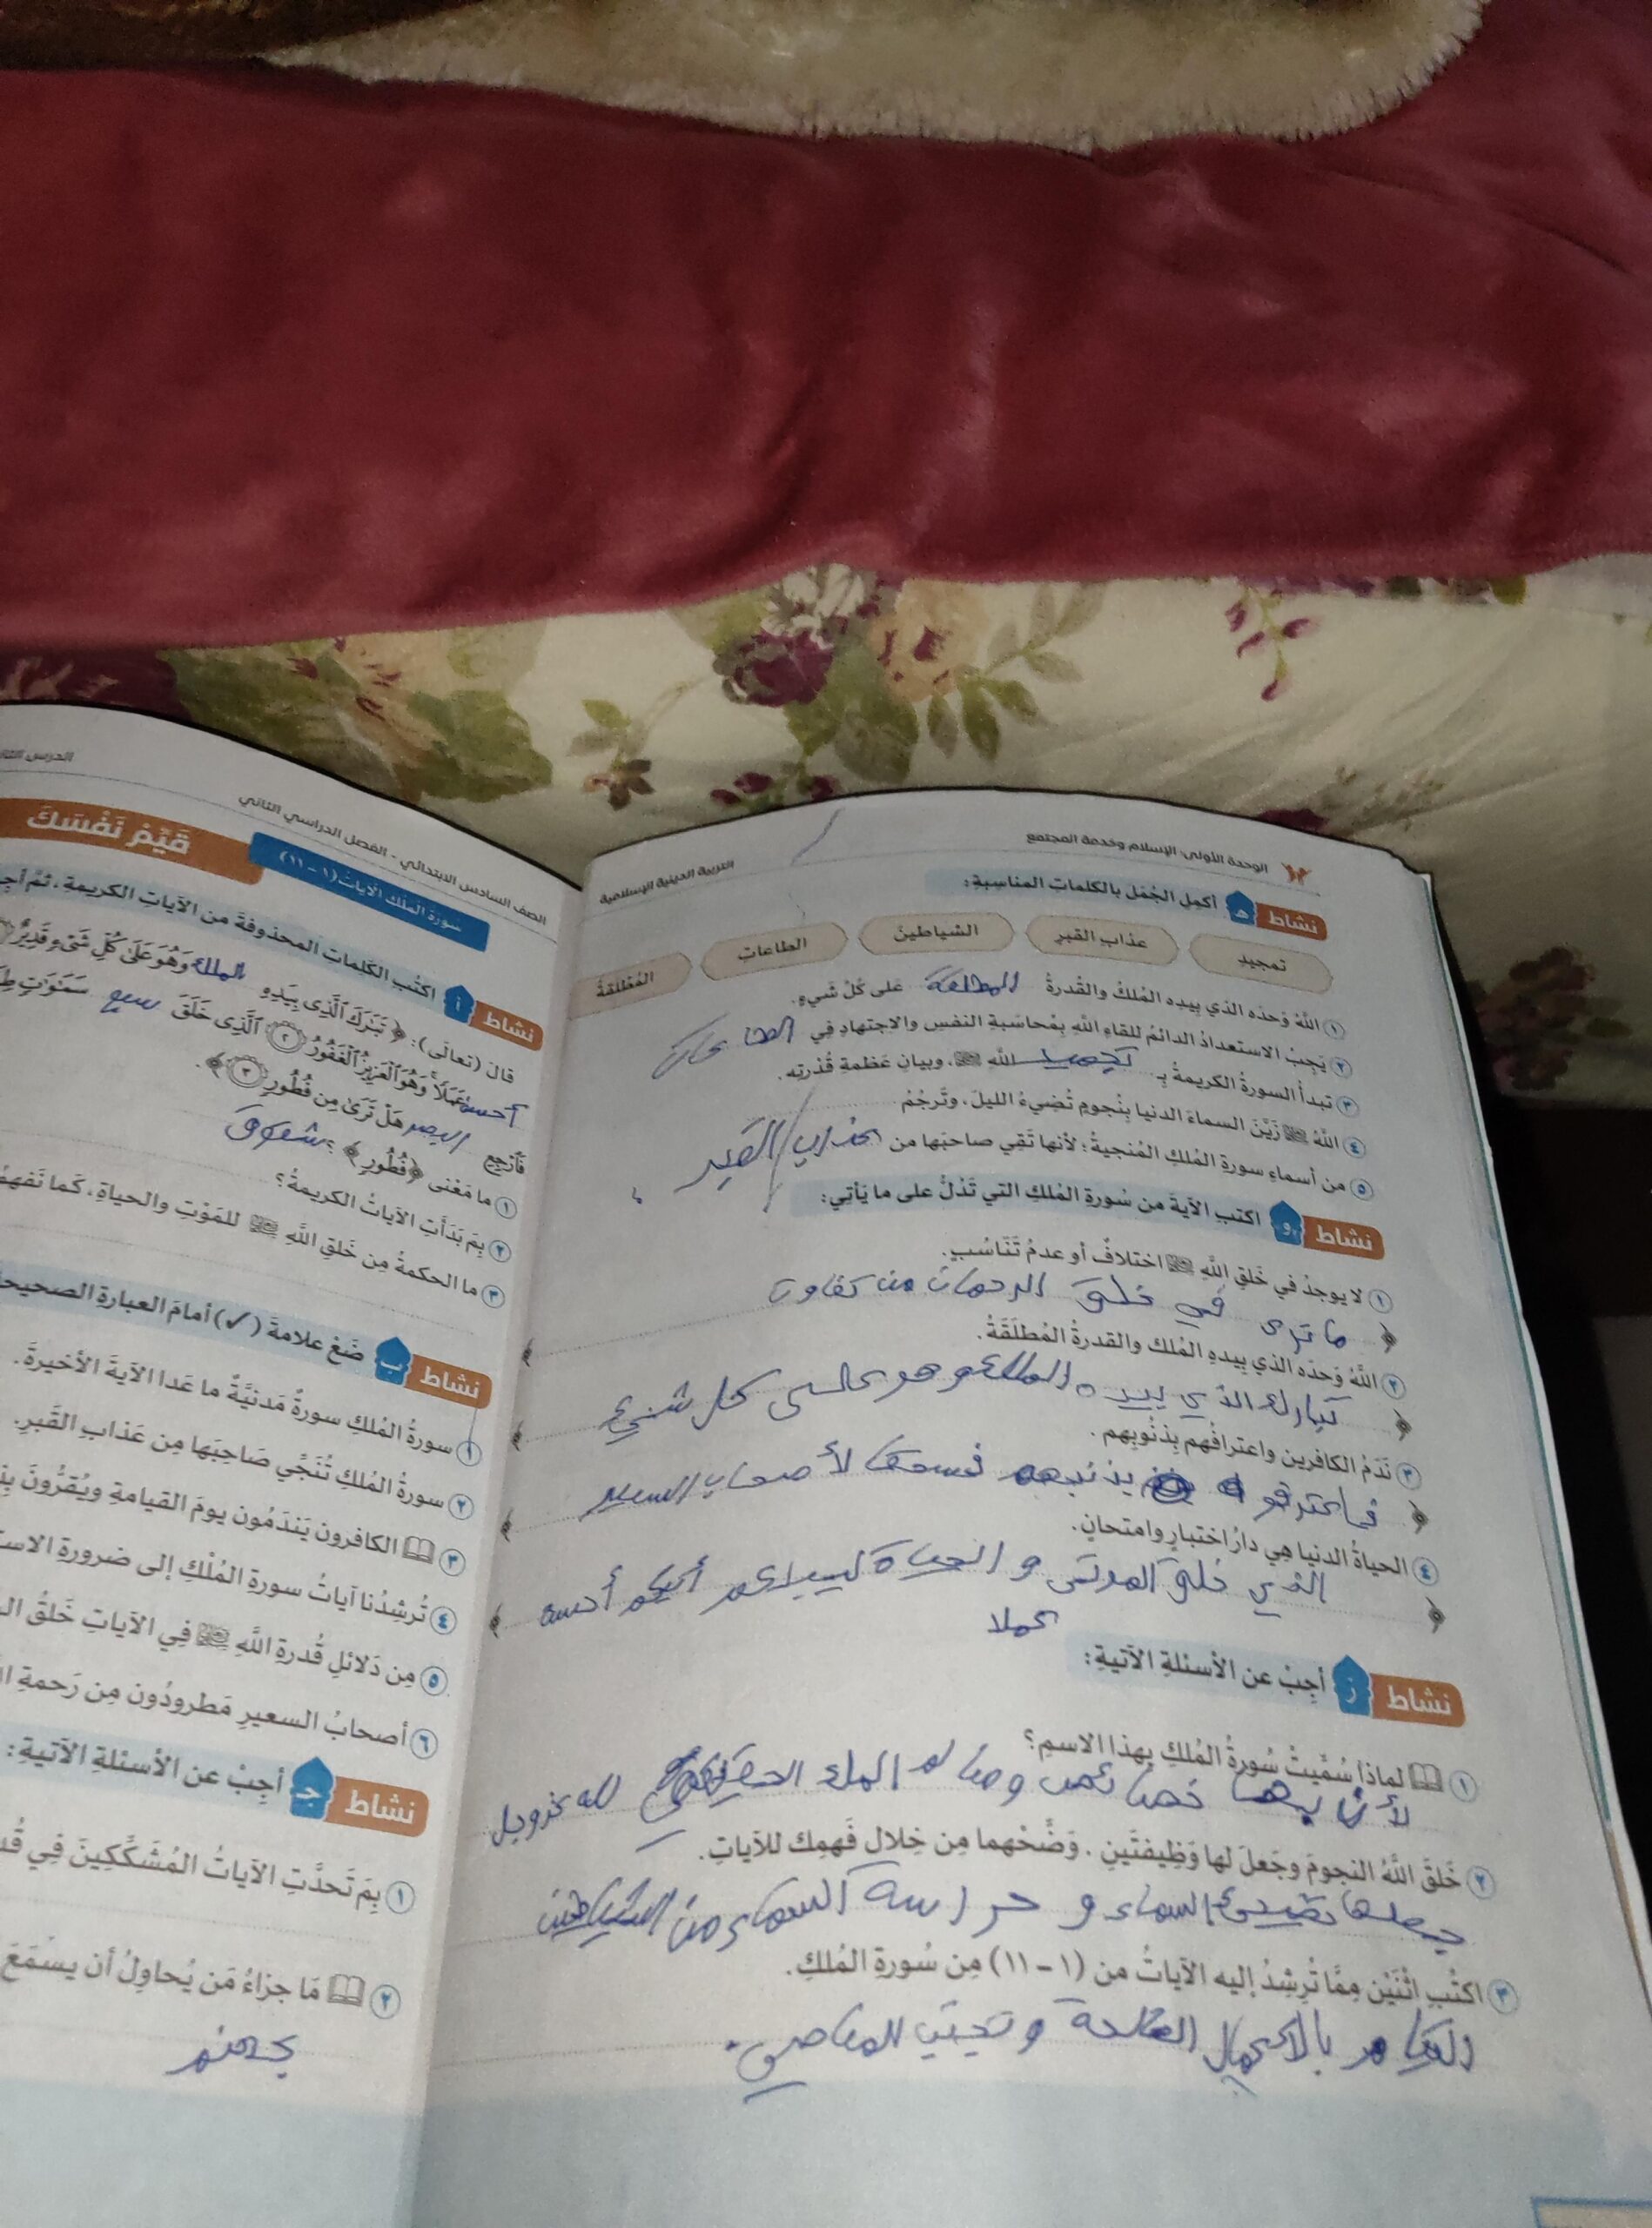 ١٢ الوحدة الأولى: الإسلام وخدمة المجتمع
التربية الدينية الإسلامية
نشاط هـ أكمِل الجُمَل بالكلماتِ المناسِبةِ:
تمجيدِ
عذابِ القبرِ
الشياطينَ
الطاعاتِ
المُطْلَقةُ
١ اللهُ وَحدَه الذي بيدِه المُلكُ والقُدرةُ المطلقة على كُلِّ شَيءٍ.
٢ يَجِبُ الاستعدادُ الدائمُ للقاءِ اللهِ بِمُحاسَبةِ النفسِ والاجتهادِ في الطاعات
٣ تبدأُ السورةُ الكريمةُ بِـ تمجيد اللهِ ﷻ، وبيانِ عَظَمةِ قُدْرتِه.
٤ اللهُ ﷻ زَيَّنَ السماءَ الدنيا بِنُجومٍ تُضِيءُ الليلَ، وتَرجُمُ
٥ من أسماءِ سورةِ المُلكِ المُنجيةُ؛ لأنها تَقِي صاحبَها من عذاب القبر
نشاط و اكتبِ الآيةَ من سُورةِ المُلكِ التي تَدُلُّ على ما يَأتِي:
١ لا يوجدُ في خَلقِ اللهِ ﷻ اختلافٌ أو عدمُ تَنَاسُبٍ.
﴿ ما ترى في خلق الرحمان من تفاوت ﴾
٢ اللهُ وَحدَه الذي بِيدِه المُلك والقدرةُ المُطلَقَةُ.
﴿ تبارك الذي بيده الملك وهو على كل شيء ﴾
٣ نَدَمُ الكافرين واعترافُهم بِذنُوبِهم.
﴿ فاعترفو بذنبهم فسحقا لأصحاب السعير ﴾
٤ الحياةُ الدنيا هِي دارُ اختبارٍ وامتحانٍ.
﴿ الذي خلق الموتى و الحياة ليبلوكم أيكم أحسن ﴾
عملا
نشاط ز أجِبْ عن الأسئلةِ الآتيةِ:
١ لماذا سُمِّيتْ سُورةُ المُلكِ بِهذا الاسمِ؟
لأن بها خصائص الملك الحقيقي لله عزوجل
٢ خَلقَ اللهُ النجومَ وجَعلَ لها وَظِيفتَينِ. وَضِّحْهما مِن خِلالِ فَهمِك للآياتِ.
جعلها تضيء السماء و حراسة السماء من الشياطين
٣ اكتُبِ اثْنَيْن مِمَّا تُرشِدُ إليه الآياتُ من (١ – ١١) مِن سُورةِ المُلكِ.
بالاعمال الصالحة و تجنب المعاصي.
الصف السادس الابتدائي - الفصل الدراسي الثاني
الدرس
قَيِّمْ نَفْسَكَ
سُورَةُ المُلكِ الآيَاتُ (١ – ١١)
نشاط أ اكتُبِ الكَلماتِ المَحذوفةَ من الآياتِ الكريمةِ، ثمَّ
قالَ (تعالَى): ﴿ تَبَٰرَكَ ٱلَّذِى بِيَدِهِ الملك وَهُوَ عَلَىٰ كُلِّ شَىْءٍ قَدِيرٌ
أحسن عَمَلًا ۚ وَهُوَ ٱلْعَزِيزُ ٱلْغَفُورُ ٢ ٱلَّذِى خَلَقَ سبع سَمَٰوَٰتٍ
فَٱرْجِعِ البصر هَلْ تَرَىٰ مِن فُطُورٍ ٣ ﴾.
١ ما مَعْنى ﴿فُطُورٍ﴾؟ شقوق
٢ بِمَ بَدَأَتِ الآياتُ الكريمةُ؟
٣ ما الحكمةُ مِن خَلقِ اللهِ ﷻ للمَوْتِ والحياةِ، كَما
نشاط ب ضَعْ علامةَ (✓) أمامَ العبارةِ
١ سورةُ المُلكِ سورةٌ مَدنيَّةٌ ما عَدا الآيةَ الأخيرةَ.
٢ سورةُ المُلكِ تُنَجِّي صَاحِبَها مِن عَذابِ القَبرِ.
٣ الكافرون يَندَمُون يومَ القيامةِ ويُقرُّونَ
٤ تُرشِدُنا آياتُ سورةِ المُلْكِ إلى ضرورةِ
٥ مِن دَلائلِ قُدرةِ اللهِ ﷻ فِي الآياتِ خَلقُ
٦ أصحابُ السعيرِ مَطرودُون مِن رَحمةِ
نشاط جـ أجِبْ عن الأسئلةِ الآتيةِ:
١ بِمَ تَحدَّتِ الآياتُ المُشَكِّكِينَ فِي
٢ مَا جزاءُ مَن يُحاوِلُ أن يسْمَعَ
جهنم